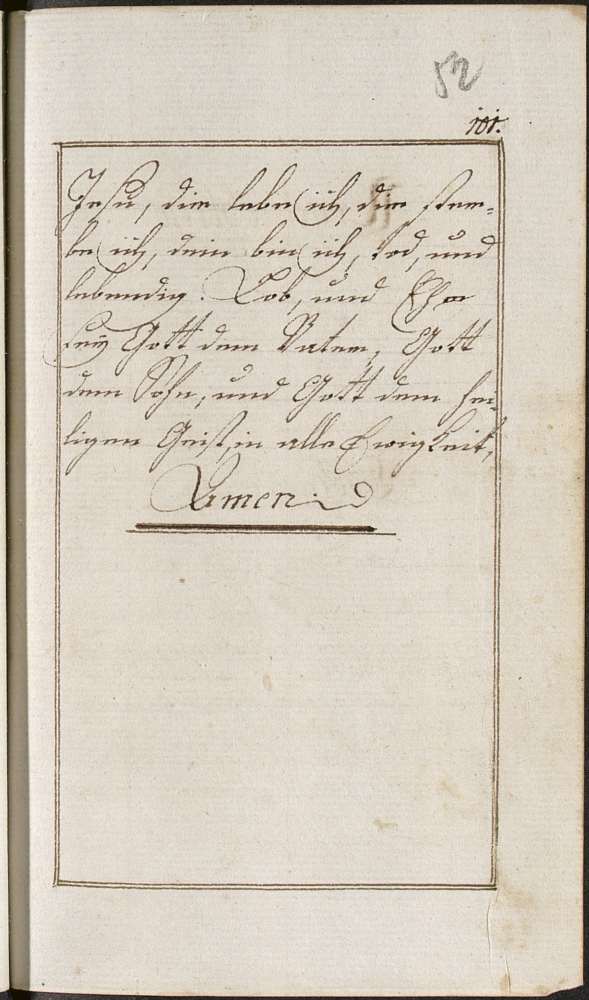 52
101.
Jesu, dir lebe ich, dir ster-
be ich, dein bin ich, tod, und
lebendig. Lob, und Ehr
seÿ Gott dem Vater, Gott
dem Sohn, und Gott dem hei-
ligen Geist, in alle Ewigkeit,
Amen